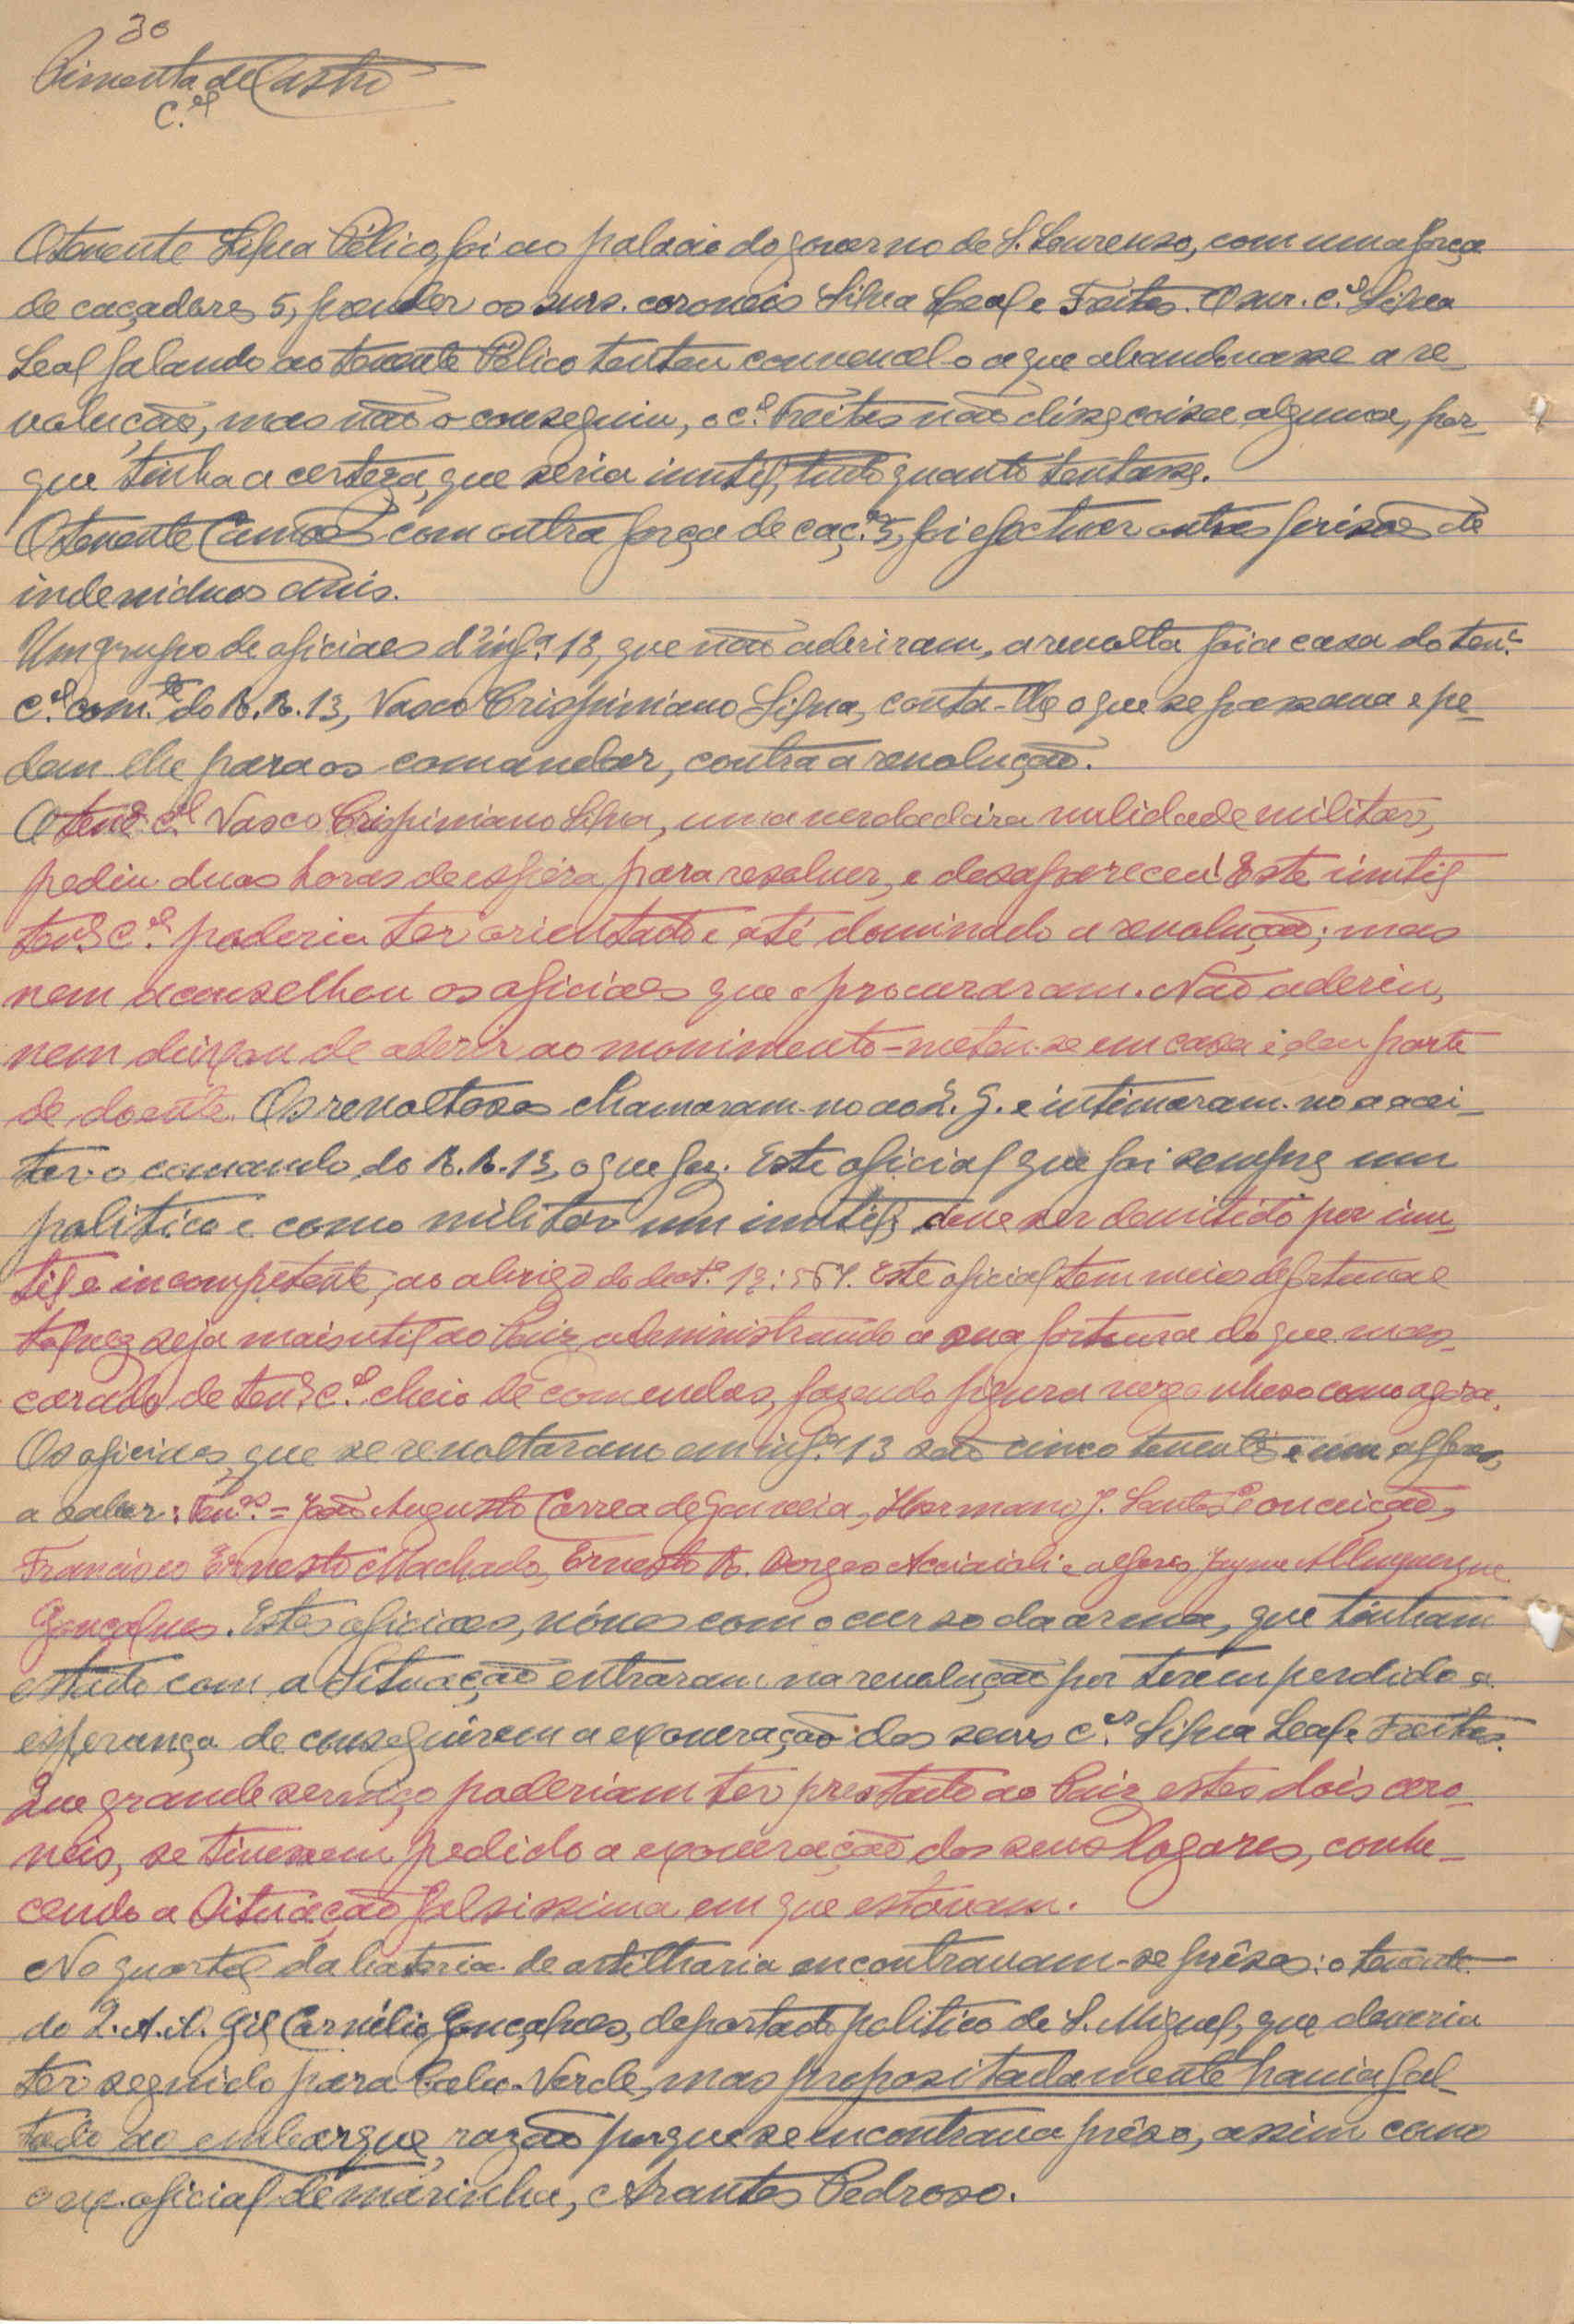 30
Pimenta de Castro
C.el
O tenente Silva Pélico, foi ao palacio do governo de S. Lourenso, com uma força
de caçadores 5, prender os snrs. coroneis Silva Leal e Freitas. O snr. c.el Silva
Leal falando ao tenente Pélico tentou convencel-o a que abandonasse a re-
volução, mas não o conseguiu, o c.el Freitas não disse coisa alguma, por-
que tinha a certeza, que seria inutil, tudo quanto tentasse.
O tenente Camões com outra força de caç.es 5, foi efectuar outras prisões de
indeviduos civis.
Um grupo de oficiaes d'inf.a 13, que não aderiram, a revolta foi a casa do ten.e
c.el com.te do R.R.13, Vasco Crispiniano Silva, conta-lhe o que se passava e pe-
dem lhe para os comandar, contra a revolução.
O ten.e c.el Vasco Crispiniano Silva, uma verdadeira nulidade militar,
pediu duas horas de espéra para resolver, e desapareceu! Este inutil
ten.e c.el poderia ter orientado e até dominado a revolução; mas
nem aconselhou os oficiaes que o procuraram. Não aderiu,
nem deixou de aderir ao movimento - meteu-se em casa e deu parte
de doente. Os revoltosos chamaram-no ao Q. G. e intimaram-no a acei-
tar o comando do R.R.13, o que fez. Este oficial que foi sempre um
politico e como militar um inutil, deve ser demitido por inu-
til e incompetente, ao abrigo do dect.o Este oficial tem meios de fortuna e
talvez seja mais util ao Paiz administrando a sua fortuna do que mas-
carado de ten.e c.el cheio de comendas, fazendo figura vergonhosa como agora.
Os oficiaes, que se revoltaram em inf.a 13 são cinco tenentes e um alferes,
a saber: Ten.es = João Augusto Correa de Gouveia, Hermano J. Santos Conceição,
Francisco Ernesto Machado, Ernesto B. Borges Acciaioli e alferes Jayme Albuquerque
Gonçalves. Estes oficiaes, nóvos com o curso da arma, que tinham
estado com a Situação entraram na revolução por terem perdido a
esperança de conseguirem a exoneração dos senrs c.eis Silva Leal e Freitas.
Que grande serviço poderiam ter prestado ao Paiz estes dois coro-
neis, se tivessem pedido a exoneração dos seus logares, conhe-
cendo a Situação falsissima em que estavam.
No quartel da bateria de artilharia encontravam-se prêsos: o tenente
do Q.A.A. Gil Cornélio Gonçalves, deportado politico de S. Miguel, que deveria
ter seguido para Cabo-Verde, mas propositadamente havia fal-
tado ao embarque, razão porque se encontrava prêso, assim como
o ex-oficial de marinha, Arantes Pedroso.